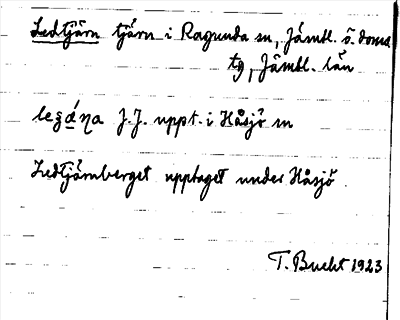 Ledtjärn tjärn i Ragunda sn, Jämtl. ö. doms
tg, Jämtl. län
J.J. uppt. i Håsjö sn
Ledtjärnberget upptaget under Håsjö
T. Bucht 1923